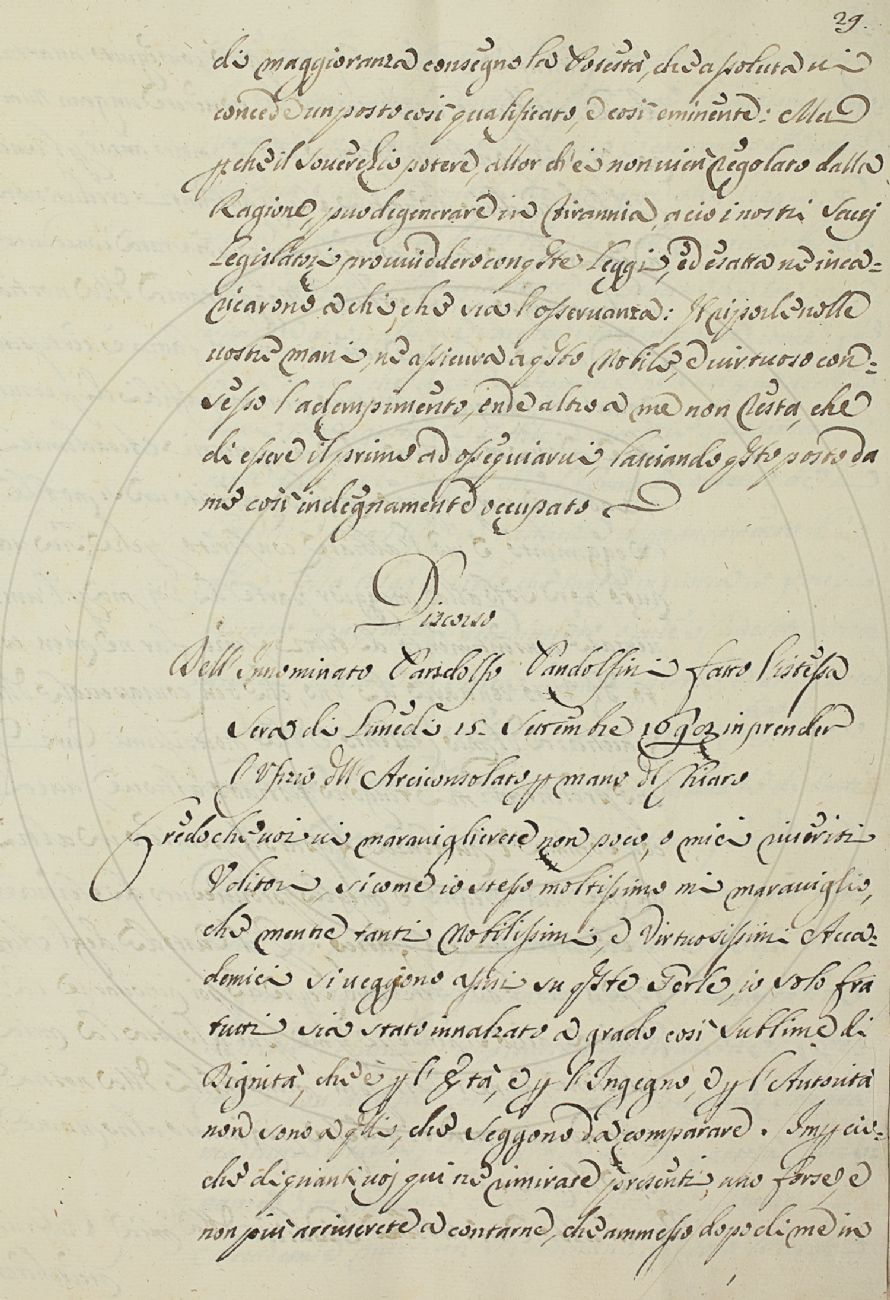 29.
di maggioranza consegno la Potestà, che assoluta vi
concede un posto così qualificato, e così eminente: Ma
p che il soverchio potere, allor ch'ei non vien regolato dalla
Ragione, puo degenerare in Tirannia, a ciò i nostri Savj
Legislatori provviddero con qste Leggi, ed esatta ne inca=
ricarono a chi, che sia l'osservanza: Il riporle nelle
vostre mani, ne assicura a qsto Nobile, e virtuoso con=
sesso l'adempimento, onde altro a me non resta, che
di essere il primo ad ossequiarvi, lasciando qsto posto da
me così indegnamente occupato
Discorso
Dell'Innominato Pandolfo Pandolfini fatto l'istessa
Sera di Lunedì 15. Settembre in prender
l'Ufizio dll'Arciconsolato p mano dl Chiaro
Credo che voi vi maraviglierete non poco, o miei riveriti
Uditori, si come io stesso moltissimo mi maraviglio,
che mentre tanti Nobilissimi, e Virtuosissimi Acca=
demici si veggono assisi su qste Gerle, io solo frà
tutti sia stato innalzato a grado così sublime di
Dignità, che e p l'Età, e p l'Ingegno, e p l'Autorità
non sono a qlli, che seggono da comparare. Imp cio=
che di quanti voj qui ne rimirate presenti, uno forse, e
non più arriverete a contarne, che ammesso dopo di me in